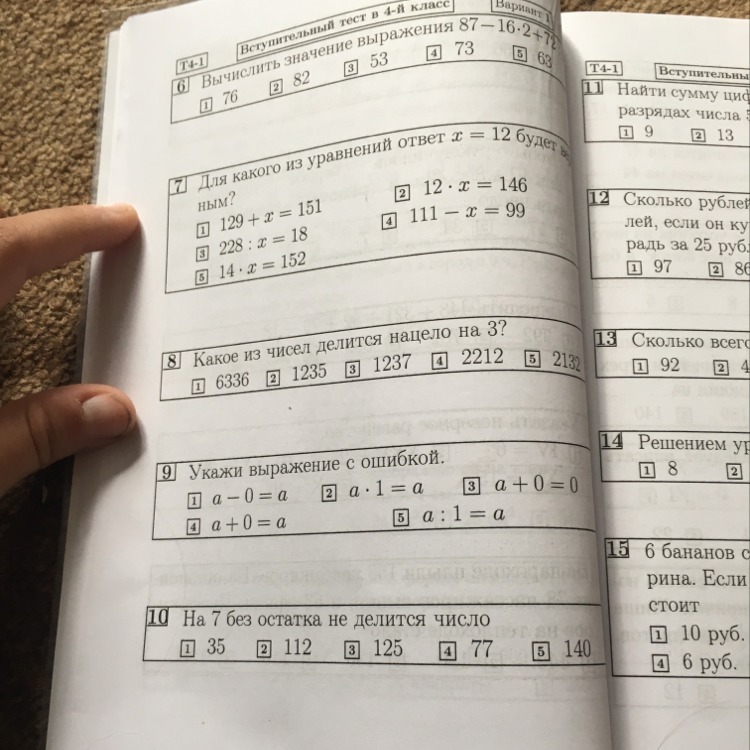 T4-1 Вступительный тест в 4-й класс Вариант
6 Вычислить значение выражения 87−16·2+72
1 76 2 82 3 53 4 73 5 63
7 Для какого из уравнений ответ x = 12 будет
ным?
1 129 + x = 151 2 12 · x = 146
3 228 : x = 18 4 111 − x = 99
5 14 · x = 152
8 Какое из чисел делится нацело на 3?
1 6336 2 1235 3 1237 4 2212 5 2132
9 Укажи выражение с ошибкой.
1 a − 0 = a 2 a · 1 = a 3 a + 0 = 0
4 a + 0 = a 5 a : 1 = a
10 На 7 без остатка не делится число
1 35 2 112 3 125 4 77 5 140
T4-1 Вступительны
11 Найти сумму циф
разрядах числа
1 9 2 13
12 Сколько рублей
лей, если он ку
радь за 25 руб
1 97 2 86
13 Сколько всего
1 92 2 4
14 Решением ур
1 8 2
15 6 бананов с
рина. Если
стоит
1 10 руб.
4 6 руб.